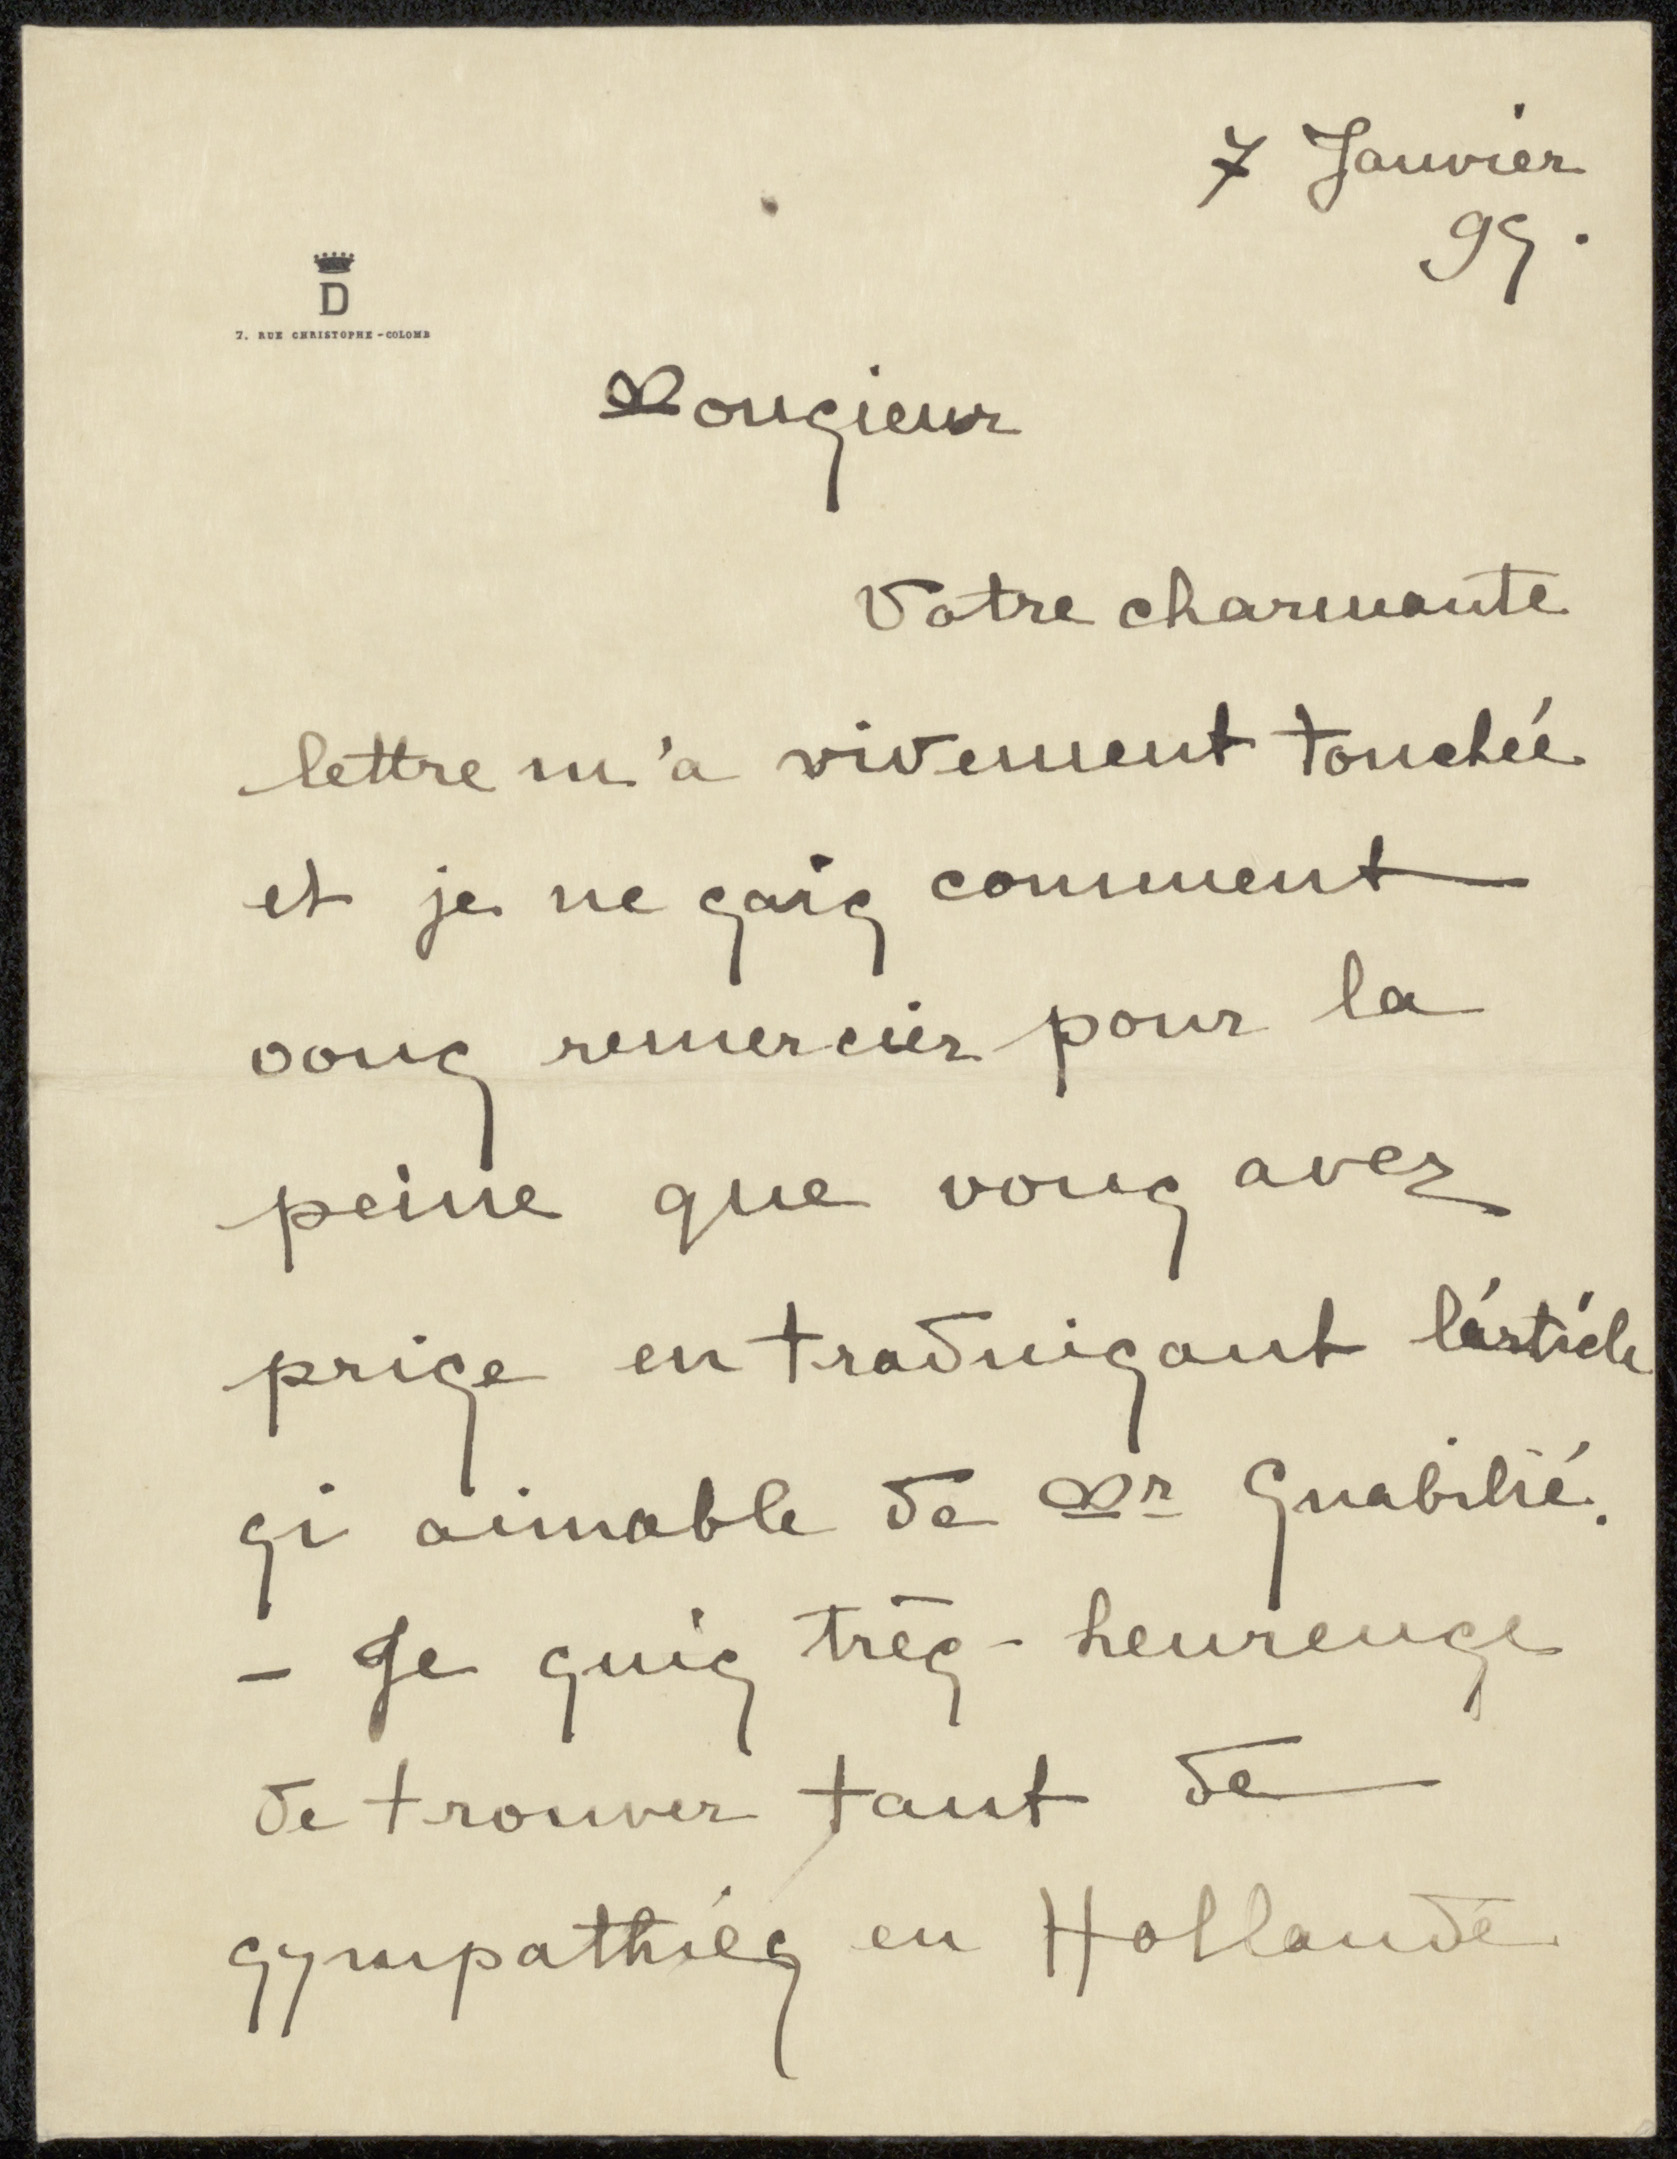 7 Janvier
99.
D
7, RUE CHRISTOPHE-COLOMB
Monsieur
Votre charmante
lettre m'a vivement touchée
et je ne sais comment
vous remercier pour la
peine que vous avez
prise en traduisant l'article
si aimable de Mr
- Je suis très-heureuse
de trouver tant de
sympathiés en Hollande